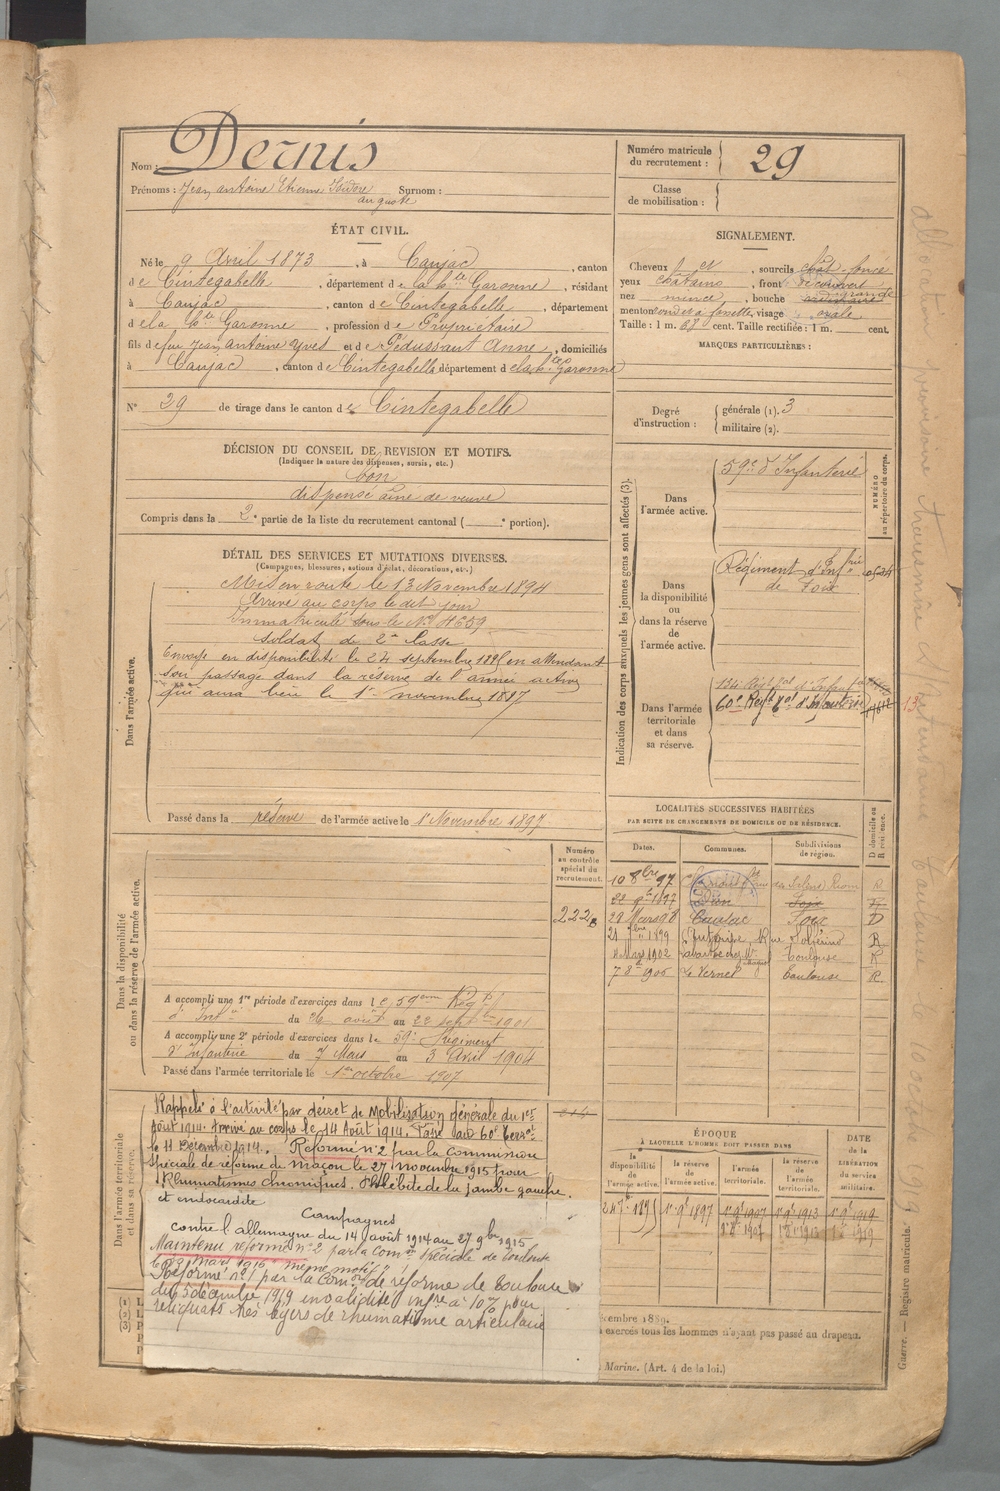 Nom : Dernis
Prénoms : Jean Antoine Etienne Isidore Surnom :
auguste
Numéro matricule du recrutement : 29
Classe de mobilisation :
ÉTAT CIVIL.
Né le 9 Avril 1873, à Caujac, canton
de Cintegabelle, département de la hte Garonne, résidant
à Caujac, canton de Cintegabelle, département
de la hte Garonne, profession de Propriétaire
fils de feu Jean Antoine Yves et de Pédussaut Anne, domiciliés
à Caujac, canton de Cintegabelle département de la hte Garonne
N° 29 de tirage dans le canton de Cintegabelle
SIGNALEMENT.
Cheveux et, sourcils chat. foncé
yeux chatains, front découvert
nez mince, bouche grande
menton rond et à fossette, visage ovale
Taille : 1 m. 68 cent. Taille rectifiée : 1 m. cent.
MARQUES PARTICULIÈRES :
Degré d'instruction : générale (1). 3
militaire (2).
DÉCISION DU CONSEIL DE REVISION ET MOTIFS.
(Indiquer la nature des dispenses, sursis, etc.)
bon
dispensé ainé de veuve
Compris dans la 2e partie de la liste du recrutement cantonal ( e portion).
DÉTAIL DES SERVICES ET MUTATIONS DIVERSES.
(Campagnes, blessures, actions d'éclat, décorations, etc.)
Dans l'armée active.
Mis en route le 13 Novembre 1894
Arrivé au corps le dit jour
Immatriculé sous le No 4659
Soldat de 2e classe
Envoyé en disponibilité le 24 septembre 1895 en attendant
son passage dans la réserve de l'armée active
qui aura lieu le 1er novembre 1897
Passé dans la réserve de l'armée active le 1er Novembre 1897
Indication des corps auxquels les jeunes gens sont affectés (3).
NUMÉRO au répertoire du corps.
Dans l'armée active.
59e d'Infanterie
Dans la disponibilité ou dans la réserve de l'armée active.
Régiment d'Infrie
de Foix
Dans l'armée territoriale et dans sa réserve.
134e Régt tal d'Infant
60e Régt tal d'Infanterie
LOCALITÉS SUCCESSIVES HABITÉES
PAR SUITE DE CHANGEMENTS DE DOMICILE OU DE RÉSIDENCE.
Dates. Communes. Subdivisions de région. D domicile ou R résidence.
10 8bre 97 R
22 9bre 1897 Foix
29 Mars 98 Caujac Foix D
1899 R
1902 Toulouse R
7 8bre 1905 Le Vernet Toulouse R
Dans la disponibilité ou dans la réserve de l'armée active.
Numéro au contrôle spécial du recrutement.
222
A accompli une 1re période d'exercices dans le 59eme Régt
d'Infie du 26 août au 22 septbre 1901
A accompli une 2e période d'exercices dans le 59e Régiment
d'Infanterie du 7 Mars au 3 Avril 1904
Passé dans l'armée territoriale le 1er octobre 1907
Dans l'armée territoriale et dans sa réserve.
Rappelé à l'activité par décret de Mobilisation générale du 1er
Août 1914. Arrivé au corps le 14 Août 1914. Passé au 60e Territ
le 11 Décembre 1914. Réformé n°2 par la Commission
Spéciale de réforme de Macon le 27 novembre 1915 pour
Rhumatismes chroniques. Phlébite de la jambe gauche.
et endocardite
Campagnes
contre l'allemagne du 14 août 1914 au 27 9bre 1915
Maintenu réformé n°2 par la Comon Spéciale de Toulouse
le 23 mars 1916 "même motif"
Réformé n°1 par la Comon de réforme de Toulouse
du 5 décembre 1919 invalidité infre à 10% pour
reliquats très légers de rhumatisme articulaire
ÉPOQUE
À LAQUELLE L'HOMME DOIT PASSER DANS
la disponibilité de l'armée active. la réserve de l'armée active. l'armée territoriale. la réserve de l'armée territoriale.
DATE de la LIBÉRATION du service militaire.
24 7bre 1895 1er 9bre 1897 1er 9bre 1907 1er 9bre 1913 1er 9bre 1919
1er 8bre 1907 1er 8bre 1913 1er 8bre 1919
décembre 1889.
exercés tous les hommes n'ayant pas passé au drapeau.
Marine. (Art. 4 de la loi.)
Guerre. — Registre matricule.